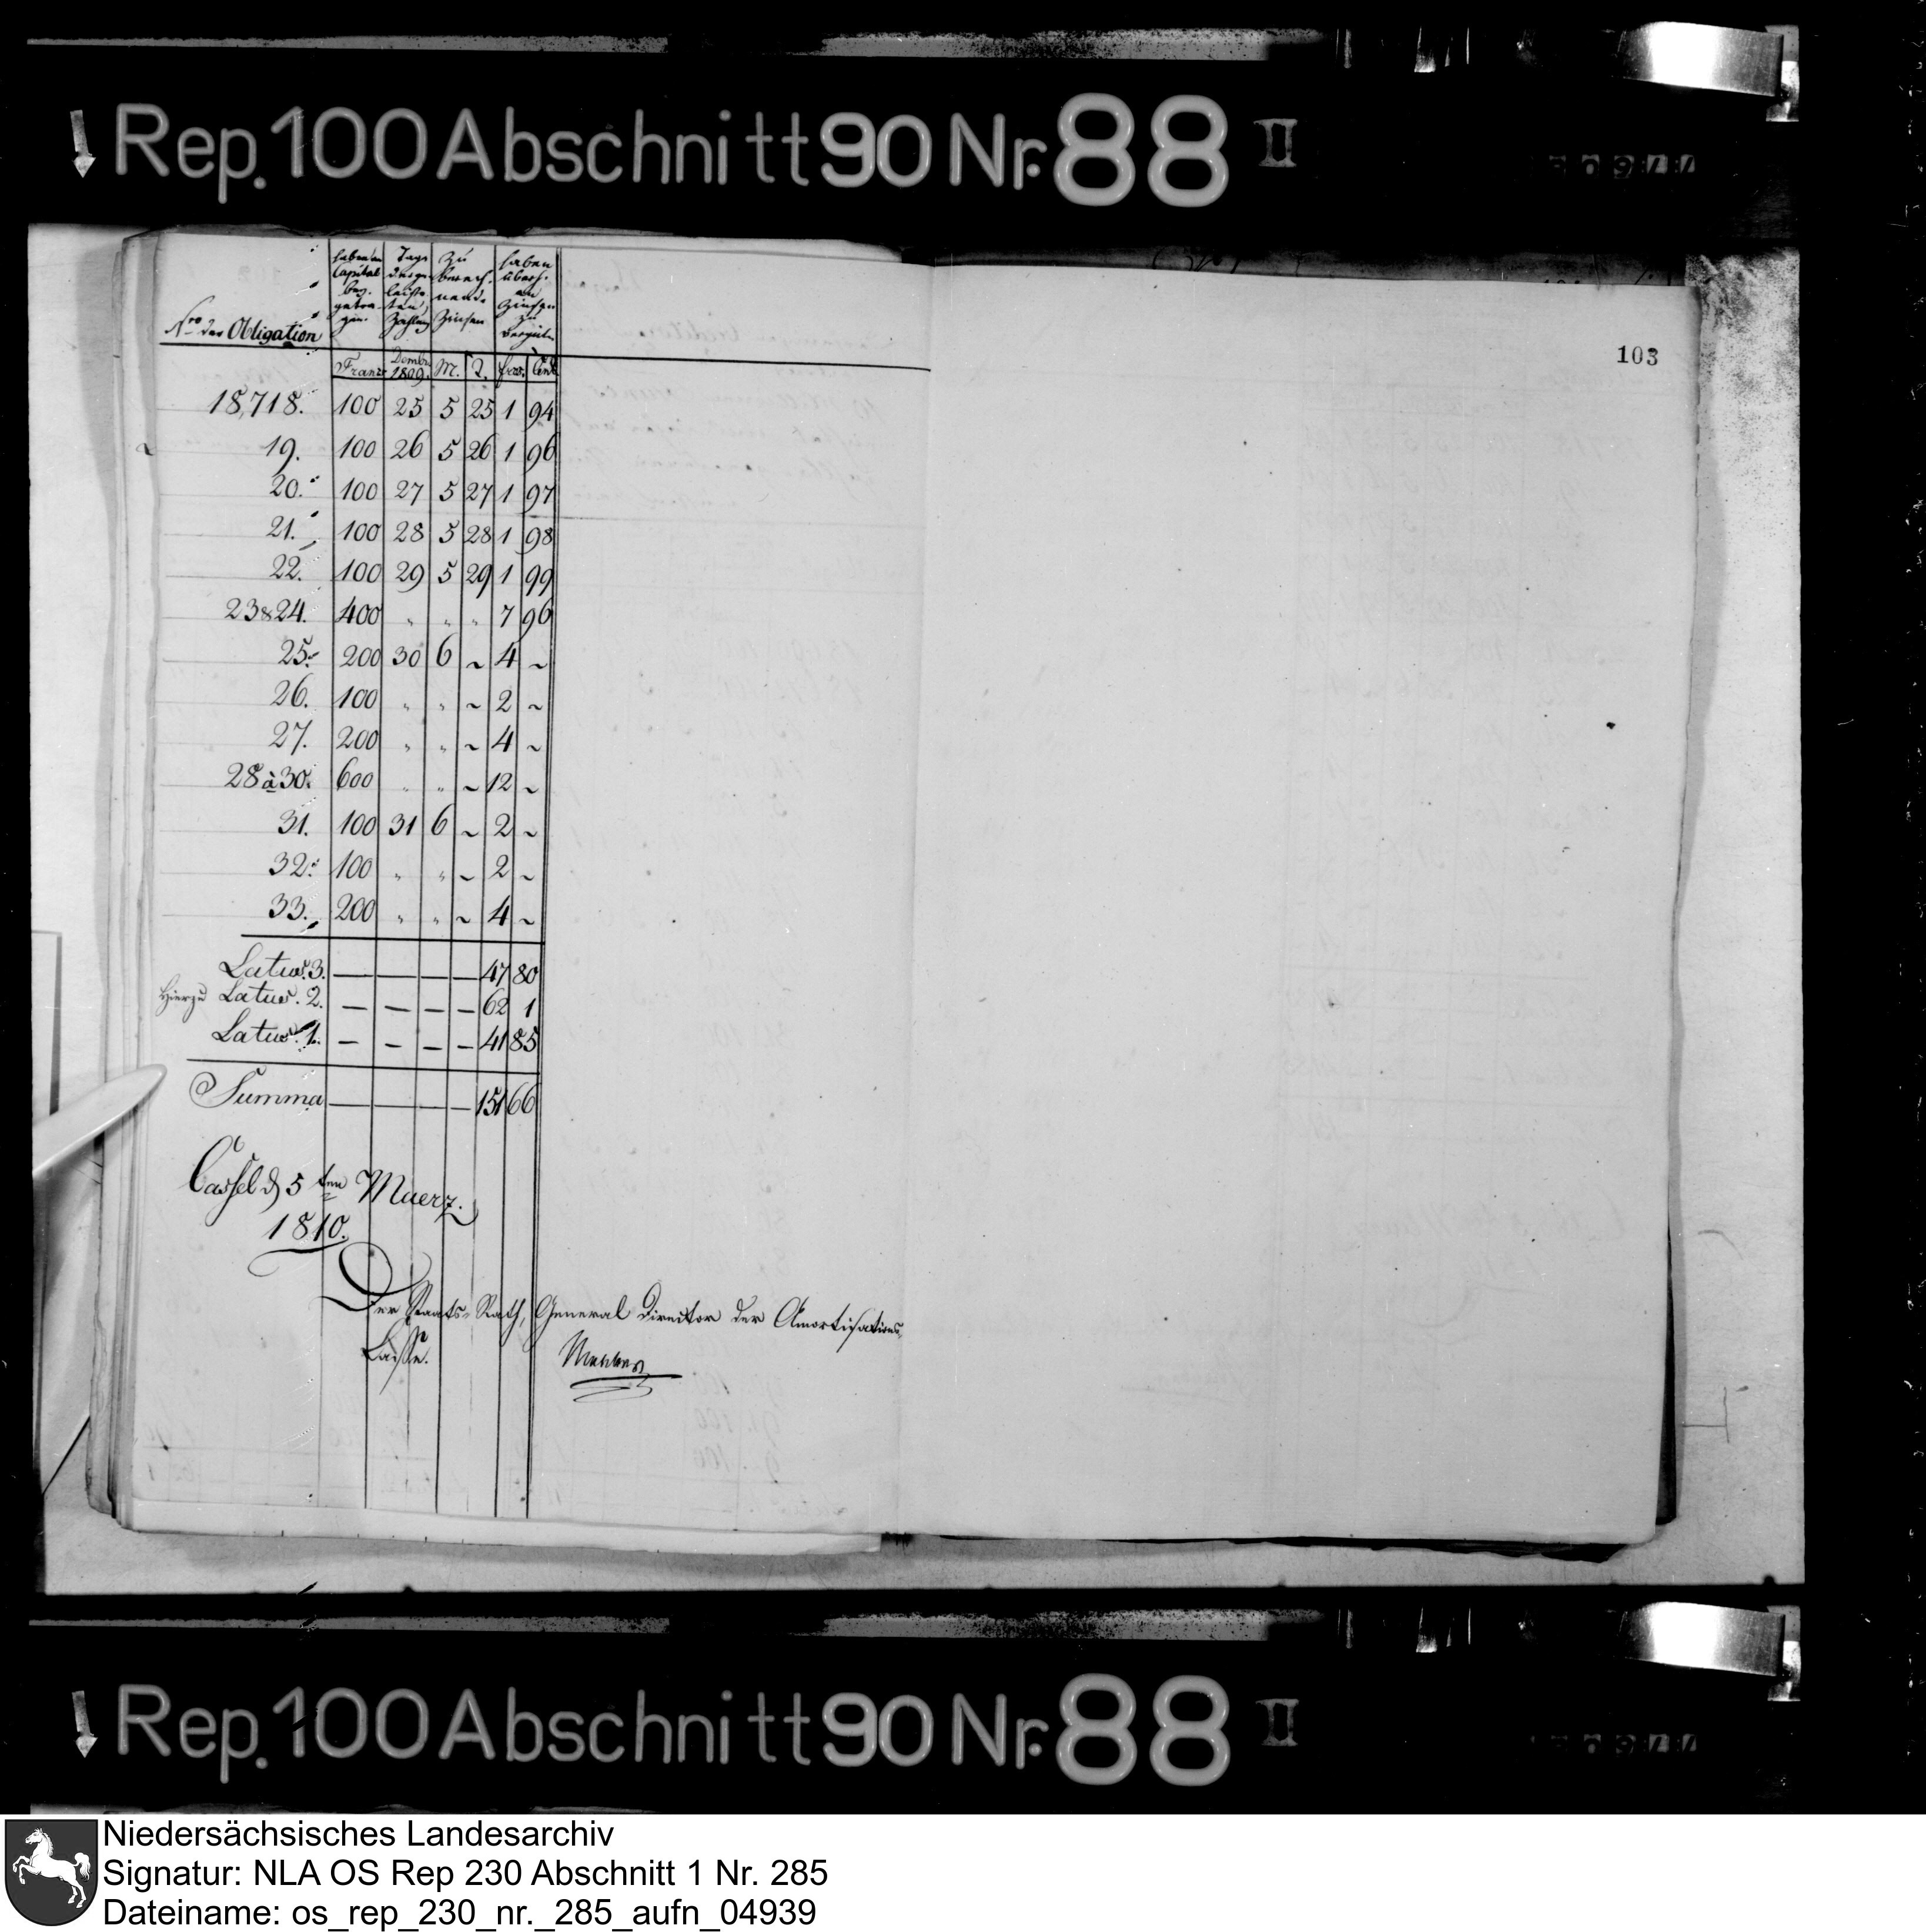 Rep. 100 Abschnitt 90 Nr. 88 II
103
Nro der Obligation
haben an Capital bey getra gen.
Tage der ge leiste ten Zahlung
Zu berech. nende Zinsen
haben überh. an Zinsen zu
Franc Decmbr. 1809. M. T. frcs. Cent.
18,718. 100 25 5 25 1 94
19. 100 26 5 26 1 96
20. 100 27 5 27 1 97
21. 100 28 5 28 1 98
22. 100 29 5 29 1 99
23 & 24. 400 " " " 7 96
25. 200 30 6 ~ 4 ~
26. 100 " " ~ 2 ~
27. 200 " " ~ 4 ~
28 à 30. 600 " " ~ 12 ~
31. 100 31 6 ~ 2 ~
32. 100 " " ~ 2 ~
33. 200 " " ~ 4 ~
Latus. 3. — — — — 47 80
Hierzu Latus. 2. — — — — 62 1
Latus. 1. — — — — 41 85
Summa — — — — 151 66
Cassel d 5ten Maerz.
1810.
Der Staats-Rath, General Director der Amortisations-
Casse.
Rep. 100 Abschnitt 90 Nr. 88 II
Niedersächsisches Landesarchiv
Signatur: NLA OS Rep 230 Abschnitt 1 Nr. 285
Dateiname: os_rep_230_nr._285_aufn_04939